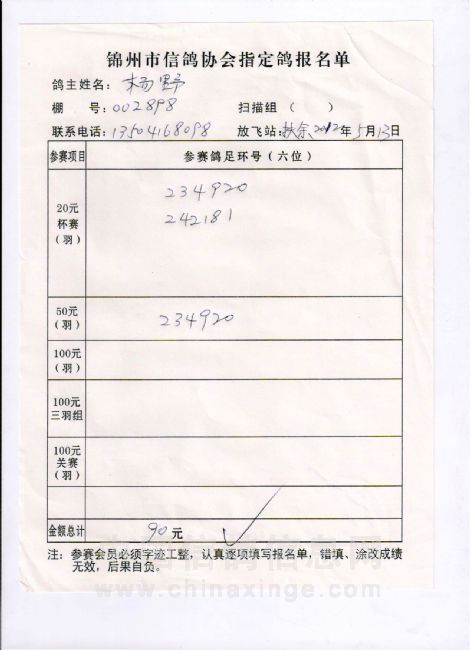 锦州市信鸽协会指定鸽报名单
鸽主姓名：杨野
棚 号：002898 扫描组（ ）
联系电话：13504168098 放飞站：扶余2012年5月13日
参赛项目 参赛鸽足环号（六位）
20元
杯赛
（羽）
234920
242181
50元
（羽）
234920
100元
（羽）
100元
三羽组
100元
关赛
（羽）
金额总计 90元
注：参赛会员必须字迹工整，认真逐项填写报名单，错填、涂改成绩
无效，后果自负。
www.chinaxinge.com